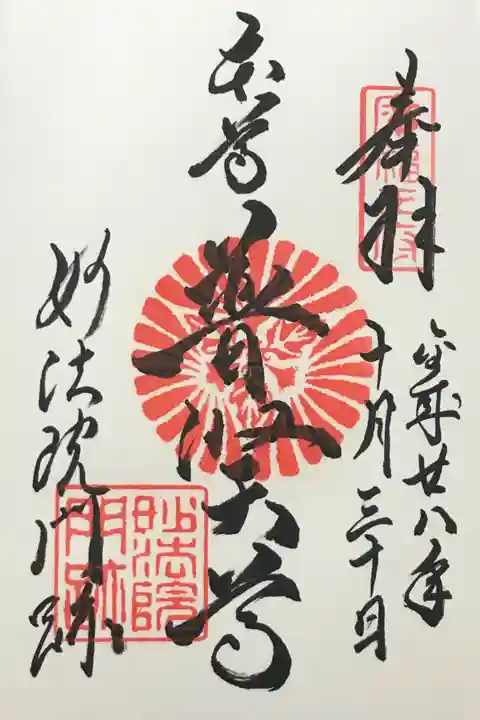 奉拝
平成廿八年
十月三十日
本尊普賢大尊
妙法院門跡
妙法院
門跡